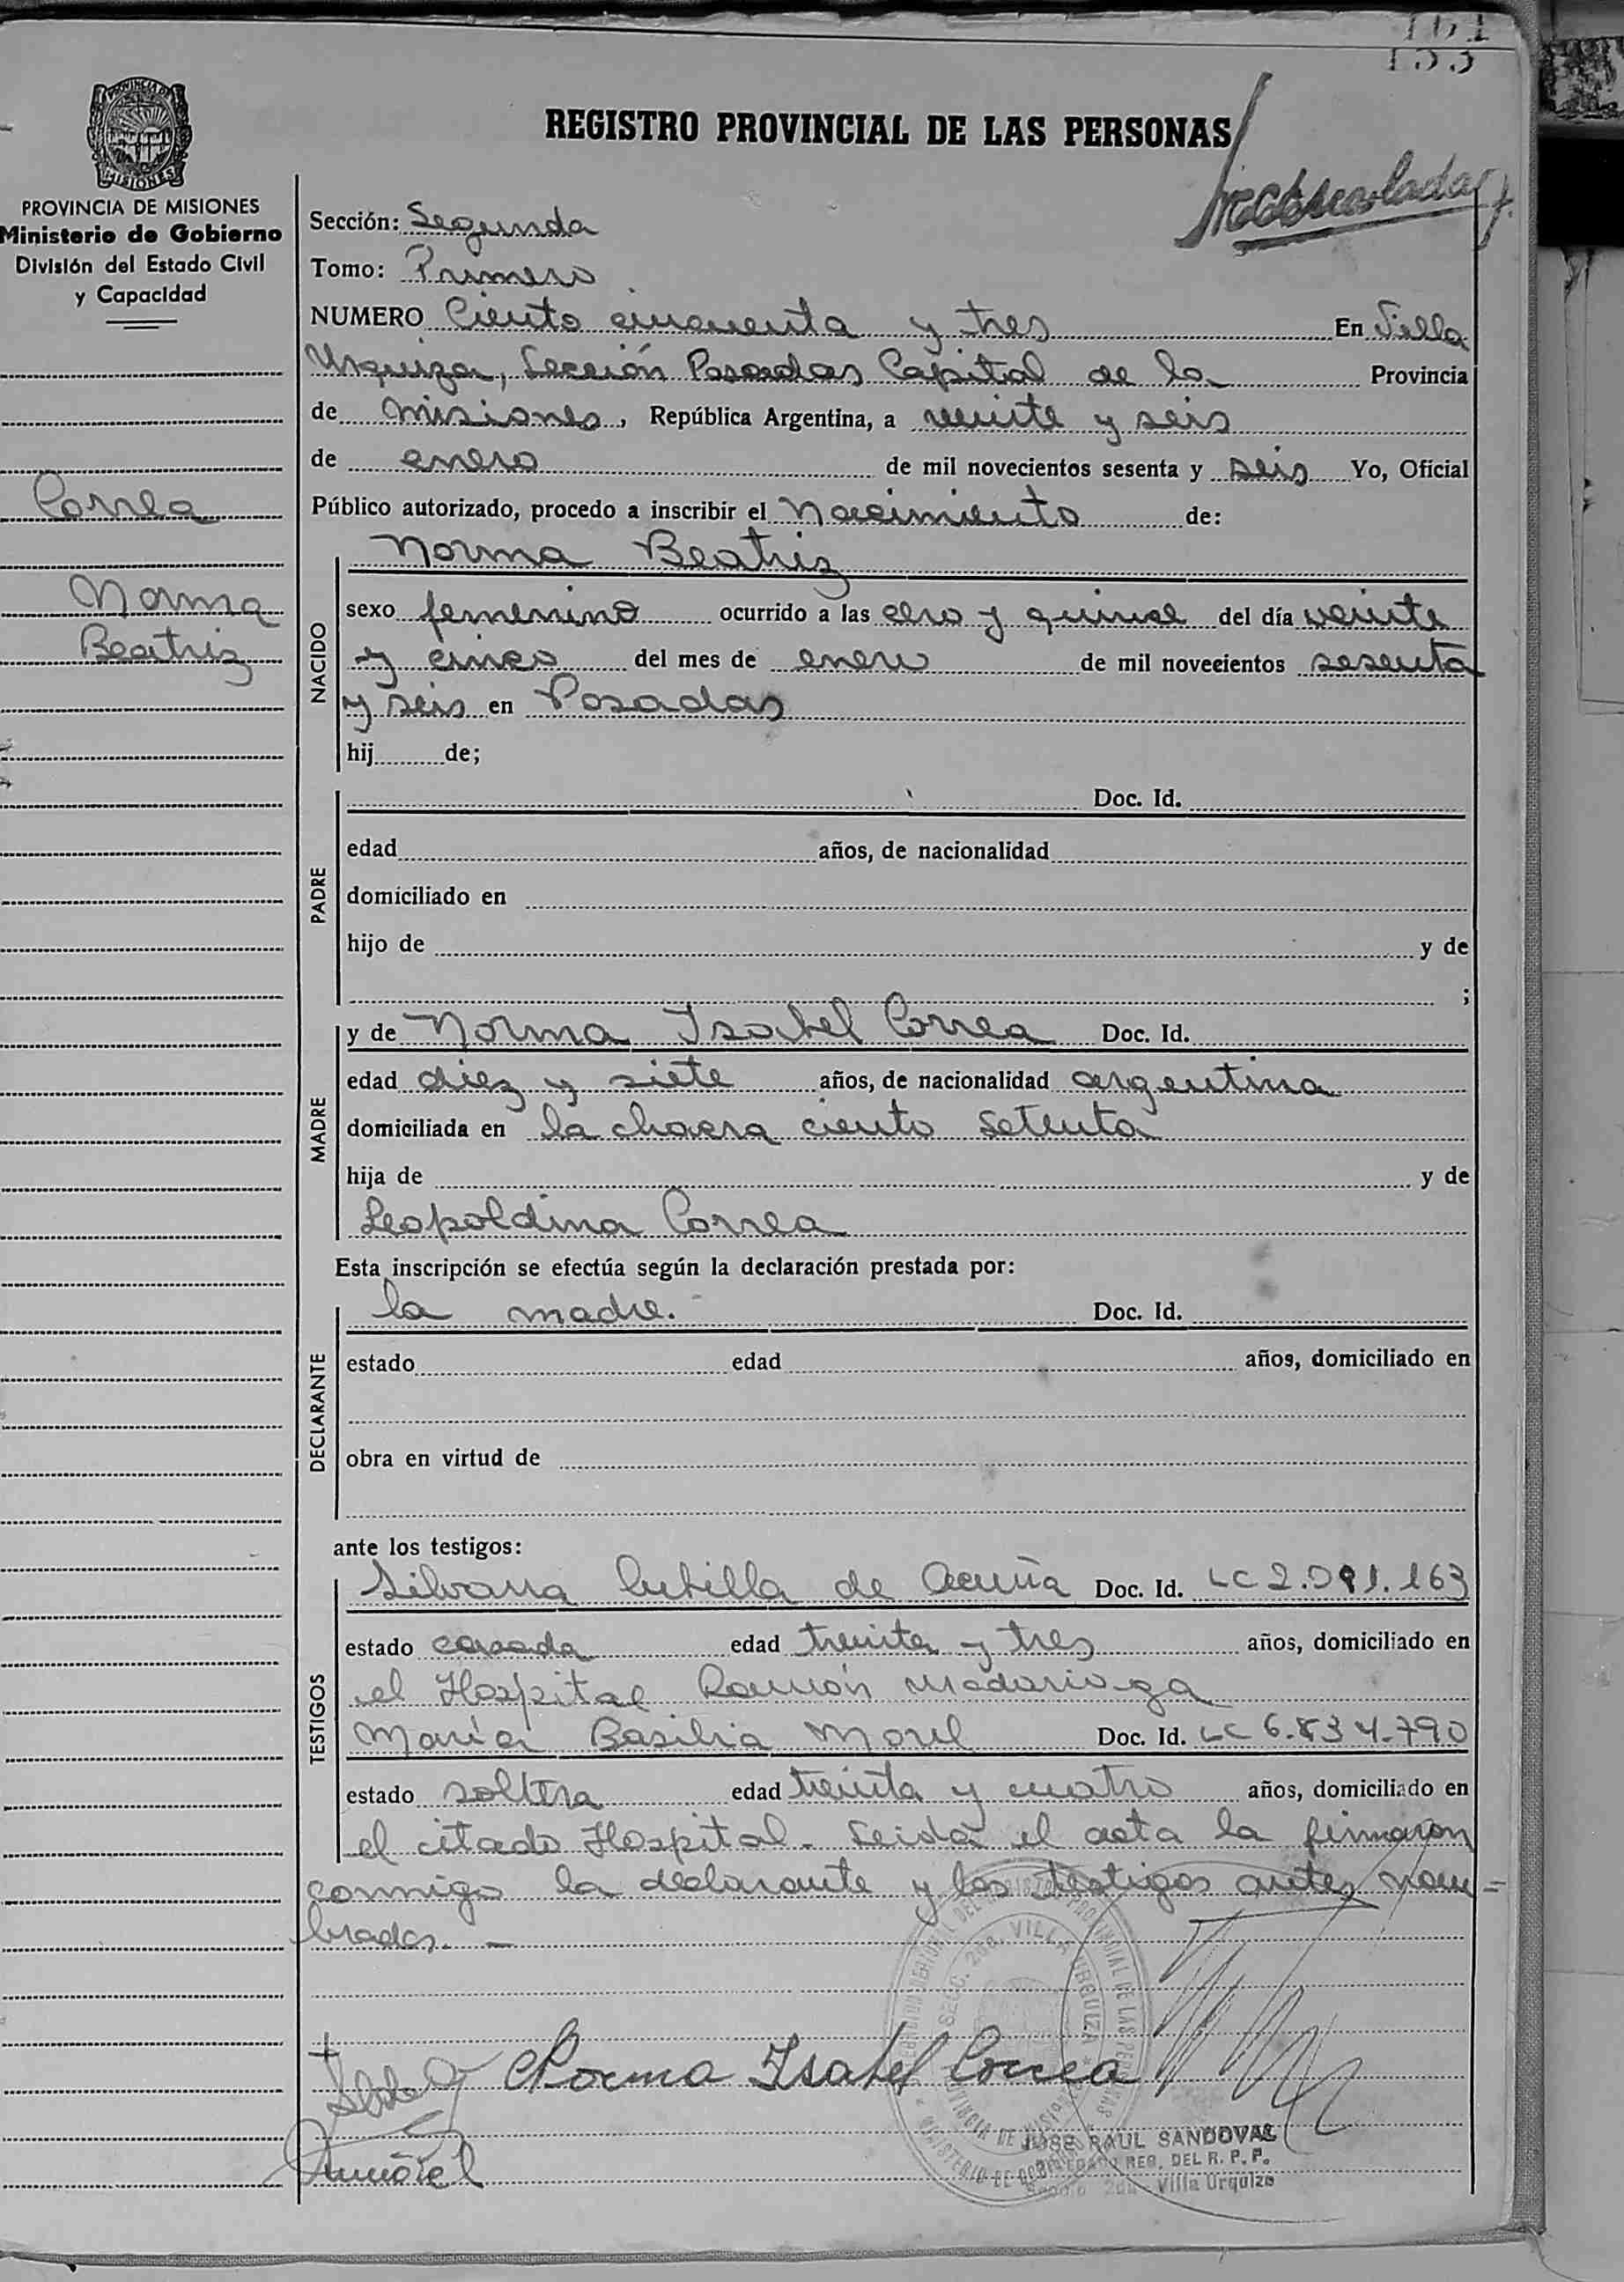 153
REGISTRO PROVINCIAL DE LAS PERSONAS
PROVINCIA DE MISIONES
Ministerio de Gobierno
División del Estado Civil
y Capacidad
Correa
Norma
Beatriz
Sección: Segunda
Tomo: Primero
NUMERO Ciento cincuenta y tres En Villa
Urquiza, Sección Posadas Capital de la Provincia
de Misiones, República Argentina, a veinte y seis
de enero de mil novecientos sesenta y seis Yo, Oficial
Público autorizado, procedo a inscribir el Nacimiento de:
NACIDO
Norma Beatriz
sexo femenino ocurrido a las cero y quince del día veinte
y cinco del mes de enero de mil novecientos sesenta
y seis en Posadas
hij de;
PADRE
Doc. Id.
edad años, de nacionalidad
domiciliado en
hijo de y de
;
MADRE
y de Norma Isabel Correa Doc. Id.
edad diez y siete años, de nacionalidad argentina
domiciliada en la chacra ciento setenta
hija de y de
Leopoldina Correa
Esta inscripción se efectúa según la declaración prestada por:
DECLARANTE
la madre. Doc. Id.
estado edad años, domiciliado en
obra en virtud de
ante los testigos:
TESTIGOS
Silvana de Acuña Doc. Id. LC 2.091.163
estado casada edad treinta y tres años, domiciliado en
el Hospital Ramón Madariaga
María Basilia Morel Doc. Id. LC 6.834.790
estado soltera edad treinta y cuatro años, domiciliado en
el citado Hospital. Leida el acta la firmaron
conmigo la declarante y los testigos antes nom=
brados. —
Norma Isabel Correa
JOSE RAUL SANDOVAL
REG. DEL R. P. P.
Villa Urquiza